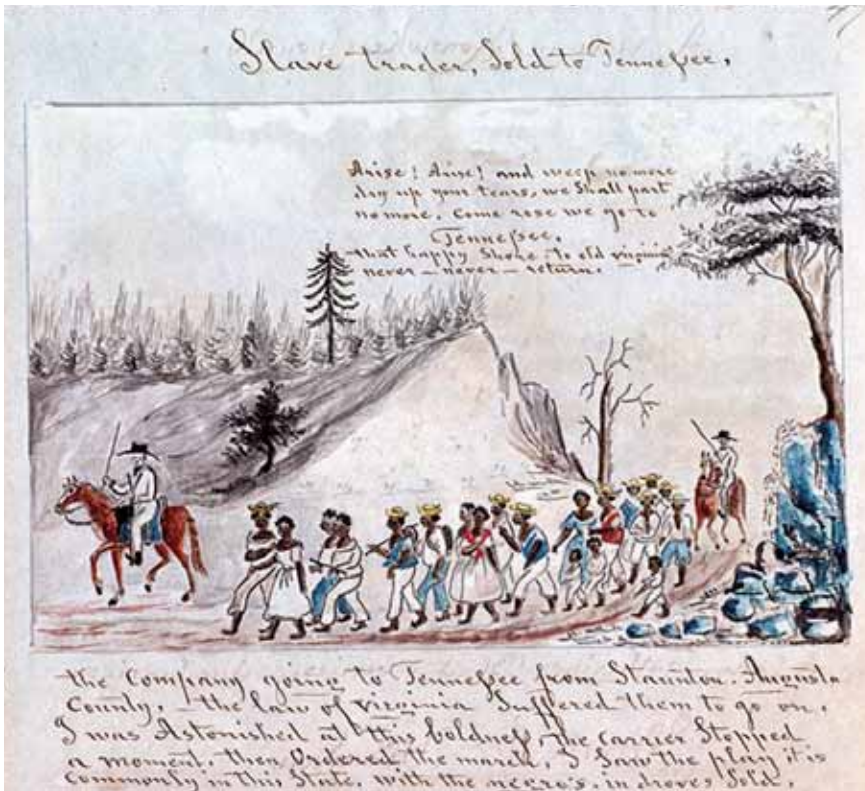 Slave trader, Sold to Tennessee,
Arise! Arise! and weep no more
dry up your tears, we Shall part
no more. Come rose we go to
Tennessee,
that happy Shore. to old virginia
never – never – return.
the Company going to Tennessee from Staunton. Augusta
County, – the law of virginia Suffered them to go on.
I was Astonished at this boldness, the carrier Stopped
a moment, then Ordered the march, I Saw the play it is
Commonly in this State, with the negro's in droves Sold.